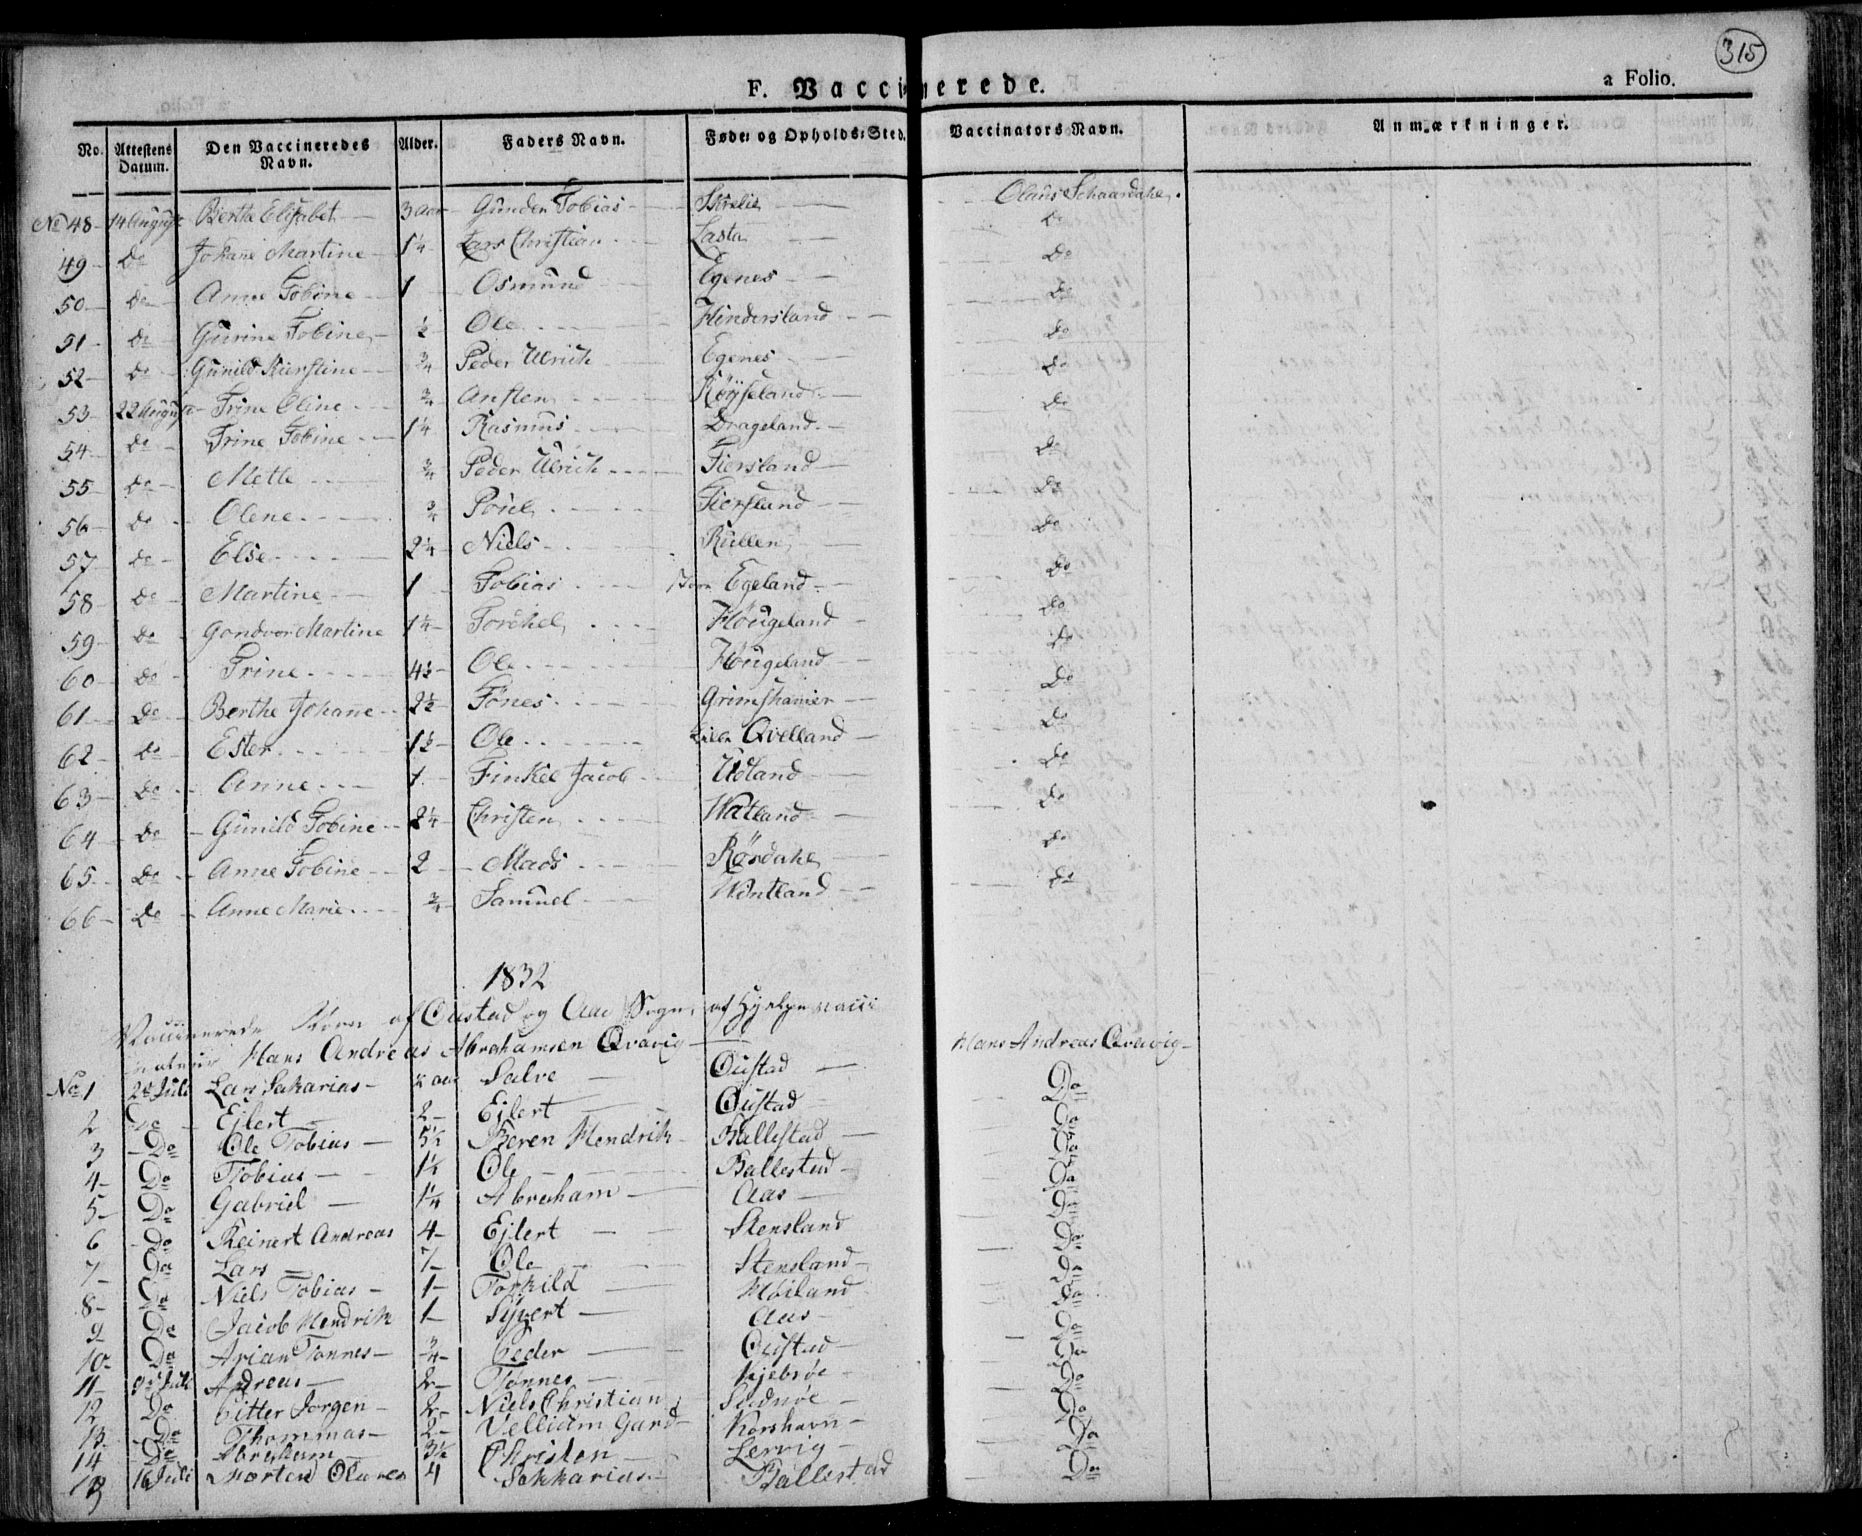 315
F. Vaccinerede.
a Folio.
No. Attestens Datum. Den Vaccineredes Navn. Alder. Faders Navn. Føde- og Opholds-Sted. Vaccinators Navn. Anmærkninger.
No 48 14 August Berthe Elisabet 3 Aar Gunder Tobias Olaus Schaardahl
49 Do Johane Martine 1¼ Lars Christian Lasta Do
50 do Anne Tobine 1 Osmund Egenes Do
51 do Gurine Tobine ½ Ole Hindersland Do
52 do Gunild Kierstine ¾ Peder Ulrich Egenes Do
53 22 August Trine Oline ¾ Ansten Röyseland Do
54 do Trine Tobine 1¼ Rasmus Drageland Do
55 do Mette ¾ Peder Ulrich Fiersland Do
56 do Olene ¾ Poul Fiersland Do
57 do Else 2¼ Niels Rullen Do
58 do Martine 1 Tobias Egeland Do
59 do Gondvor Martine 1¼ Torchel Höugeland Do
60 do Trine 4½ Ole Höugeland Do
61 Do Berthe Johane 2½ Tönes Grimshamer Do
62 do Ester 1½ Ole Qvelland Do
63 Do Anne 1 Finkel Jacob Udland Do
64 Do Gunild Tobine 2¼ Christen Watland Do
65 Do Anne Tobine 2 Mads Rösdahl Do
66 do Anne Marie ¾ Samuel Wintland Do
1832
Vaccinerede Börn af Oustad og Aae Sogne af Hjelpevacci
nateur Hans Andreas Abrahamsen Qvavig Hans Andreas Qvavig
No 1 2de Juli Lars Sakarias Salve Oustad Do
2 Do Ejlert 2 Ejlert Oustad Do
3 Do Ole Tobias 5½ Beren Hendrik Ballestad Do
4 Do Tobias 1½ Ole Ballestad Do
5 Do Gabriel 1¼ Abraham Aas Do
6 Do Reinert Andreas 4 Ejlert Stensland Do
7 Do Lars 7 Ole Stensland Do
8 Do Niels Tobias 1 Torkild Höiland Do
9 Do Jacob Hendrik 1 Sivert Aas Do
10 Do Arian Tönnes ¾ Peder Oustad Do
11 9de Juli Andreas 2 Tønnes Kjebsøe Do
12 Do Pitter Jørgen 2 Niels Christian Do
13 Do Thommas 2 Velliam Gard Korshavn Do
14 Do Abraham 3½ Christen Lervig Do
15 16 Juli Morten Olaves 4 Sakkarias Ballestad